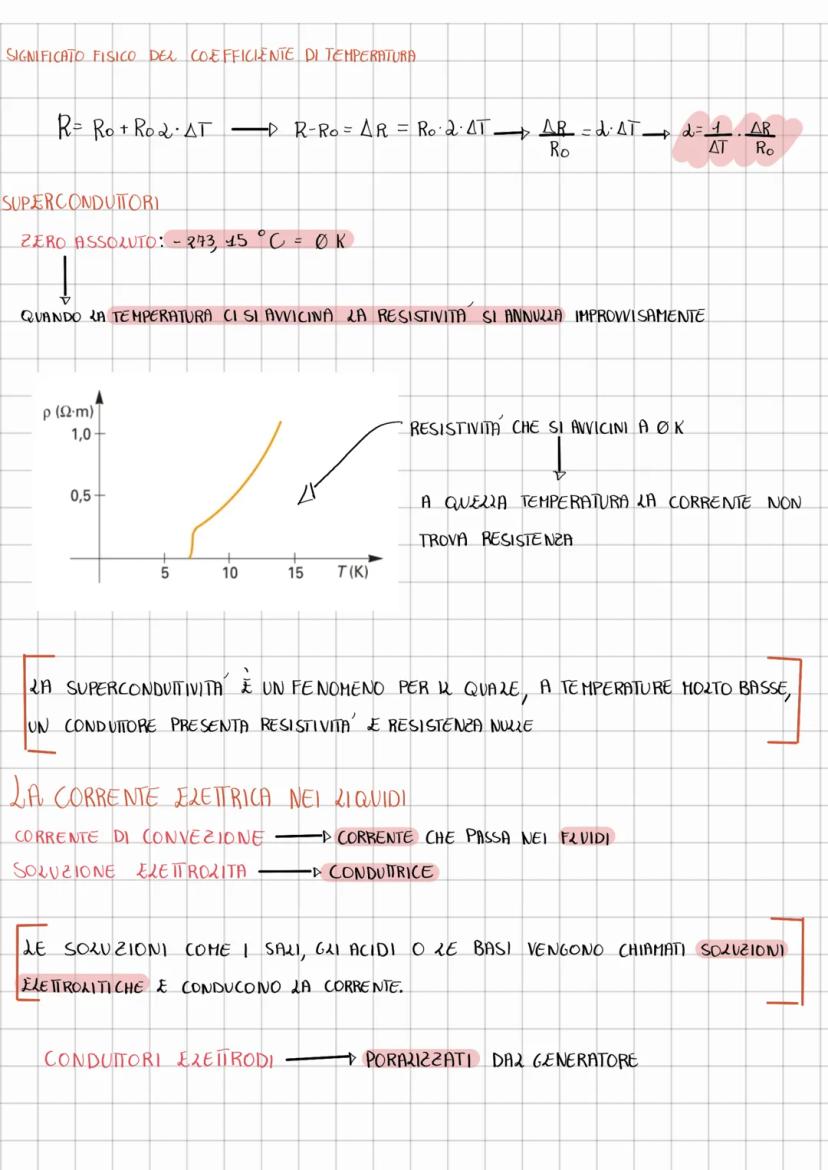 SIGNIFICATO FISICO DEL COEFFICIENTE DI TEMPERATURA
R = R₀ + R₀ α · ΔT → R-R₀ = ΔR = R₀ · α · ΔT → ΔR/R₀ = α · ΔT → α = 1/ΔT · ΔR/R₀
SUPERCONDUTTORI
ZERO ASSOLUTO: - 273,15 °C = 0 K
QUANDO LA TEMPERATURA CI SI AVVICINA LA RESISTIVITA' SI ANNULLA IMPROVVISAMENTE
ρ (Ω·m)
1,0
0,5
5 10 15 T (K)
RESISTIVITA' CHE SI AVVICINI A 0 K
A QUELLA TEMPERATURA LA CORRENTE NON
TROVA RESISTENZA
LA SUPERCONDUTTIVITA' È UN FENOMENO PER IL QUALE, A TEMPERATURE MOLTO BASSE,
UN CONDUTTORE PRESENTA RESISTIVITA' E RESISTENZA NULLE
LA CORRENTE ELETTRICA NEI LIQUIDI
CORRENTE DI CONVEZIONE → CORRENTE CHE PASSA NEI FLUIDI
SOLUZIONE ELETTROLITA → CONDUTTRICE
LE SOLUZIONI COME I SALI, GLI ACIDI O LE BASI VENGONO CHIAMATI SOLUZIONI
ELETTROLITICHE E CONDUCONO LA CORRENTE.
CONDUTTORI ELETTRODI → PORALIZZATI DAL GENERATORE